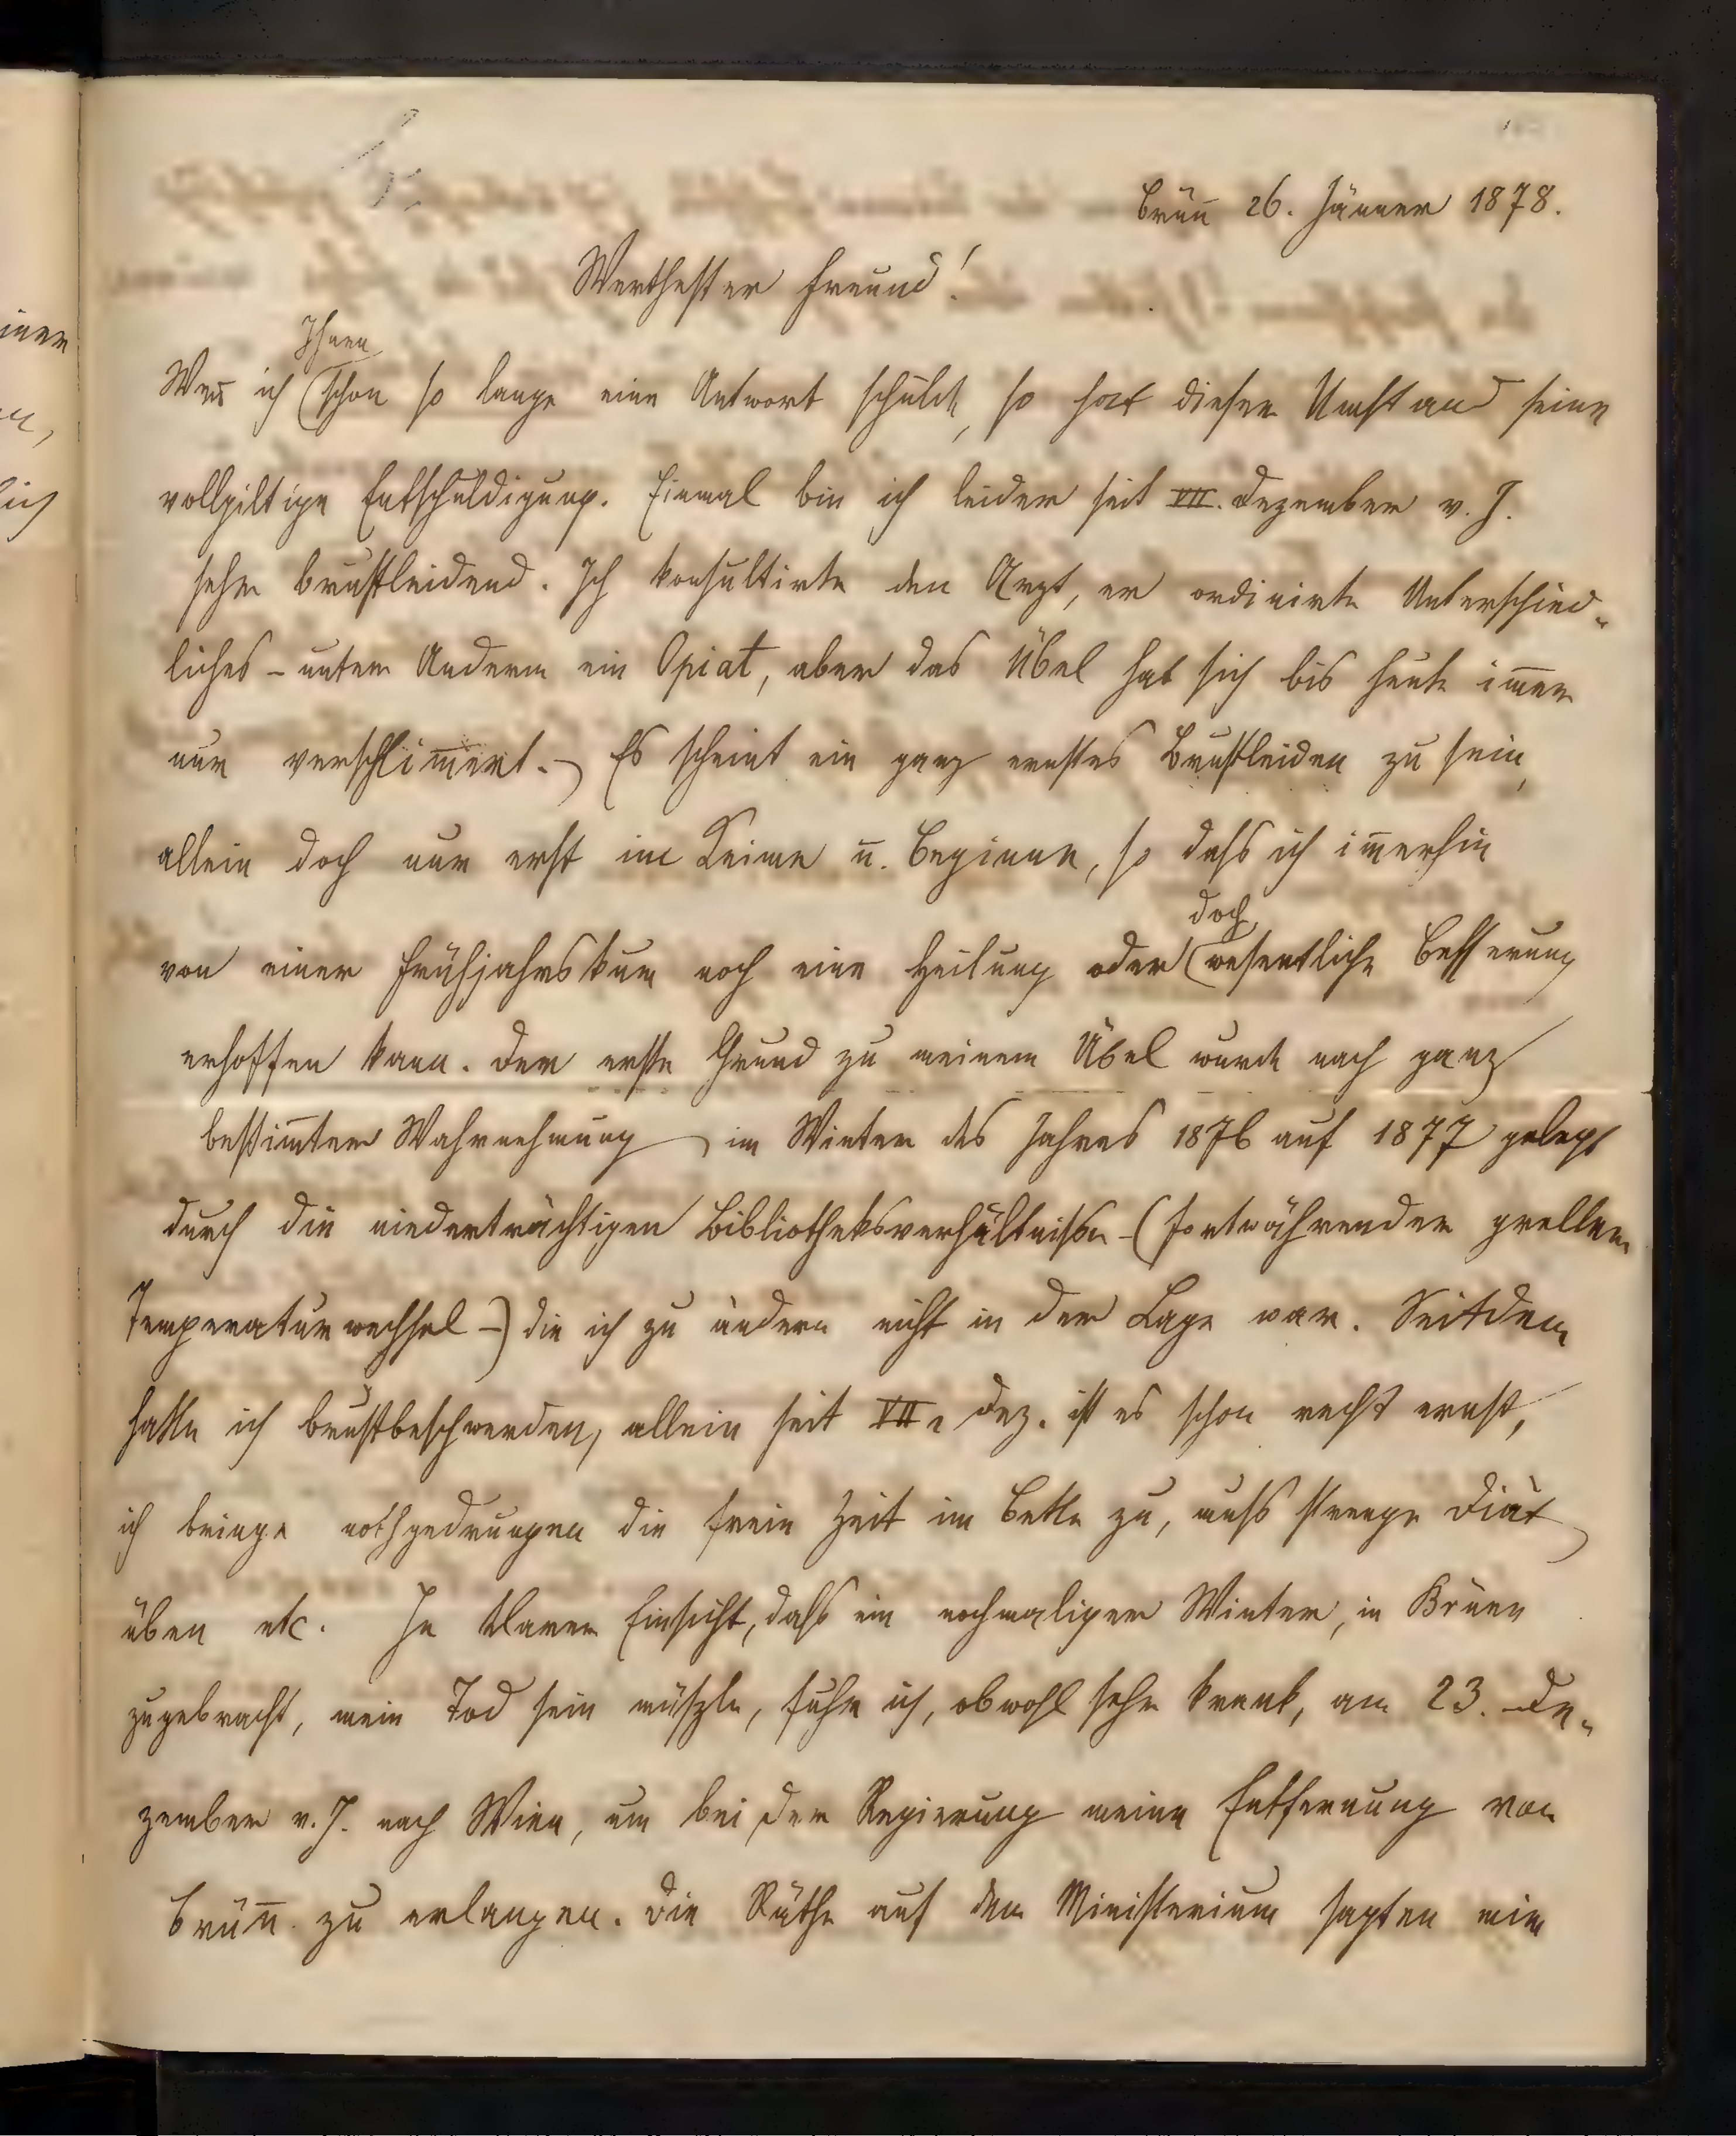 Brün̅ 26. Jänner 1878.
Werthester Freund!
Ihnen
Wen̅ ich (schon so lange eine Antwort schulde, so hat dieser Umstand seine
vollgiltige Entschuldigung. Einmal bin ich leider seit VII. Dezember v. J.
sehr brustleidend. Ich konsultirte den Arzt, er ordinirte Unterschied-
liches – unter Anderm ein Opiat, aber das Übel hat sich bis heute im̅er
nur verschlim̅ert. – Es scheint ein ganz ernstes Brustleiden zu sein,
allein doch nur erst im Keime u. Beginne, so daſs ich im̅erhin
doch
von einer Frühjahrskur noch eine Heilung oder (wesentliche Besserung
erhoffen kann. Der erste Grund zu meinem Übel wurde nach ganz
bestim̅ter Wahrnehmung im Winter des Jahres 1876 auf 1877 gelegt
durch die niederträchtigen Bibliotheksverhältniſse – (fortwährender greller
Temperaturwechsel –) die ich zu ändern nicht in der Lage war. Seitdem
hatte ich Brustbeschwerden, allein seit VII. Dez. ist es schon recht ernst,
ich bringe nothgedrungen die freie Zeit im Bette zu, muſs strenge Diät
üben etc. In klarer Einsicht, daſs ein nochmaliger Winter, in Brünn
zugebracht, mein Tod sein müſzte, fuhr ich, obwohl sehr krank, am 23. De-
zember v. J. nach Wien, um bei der Regierung meine Entfernung von
Brün̅ zu erlangen. Die Räthe auf dem Ministerium sagten mir